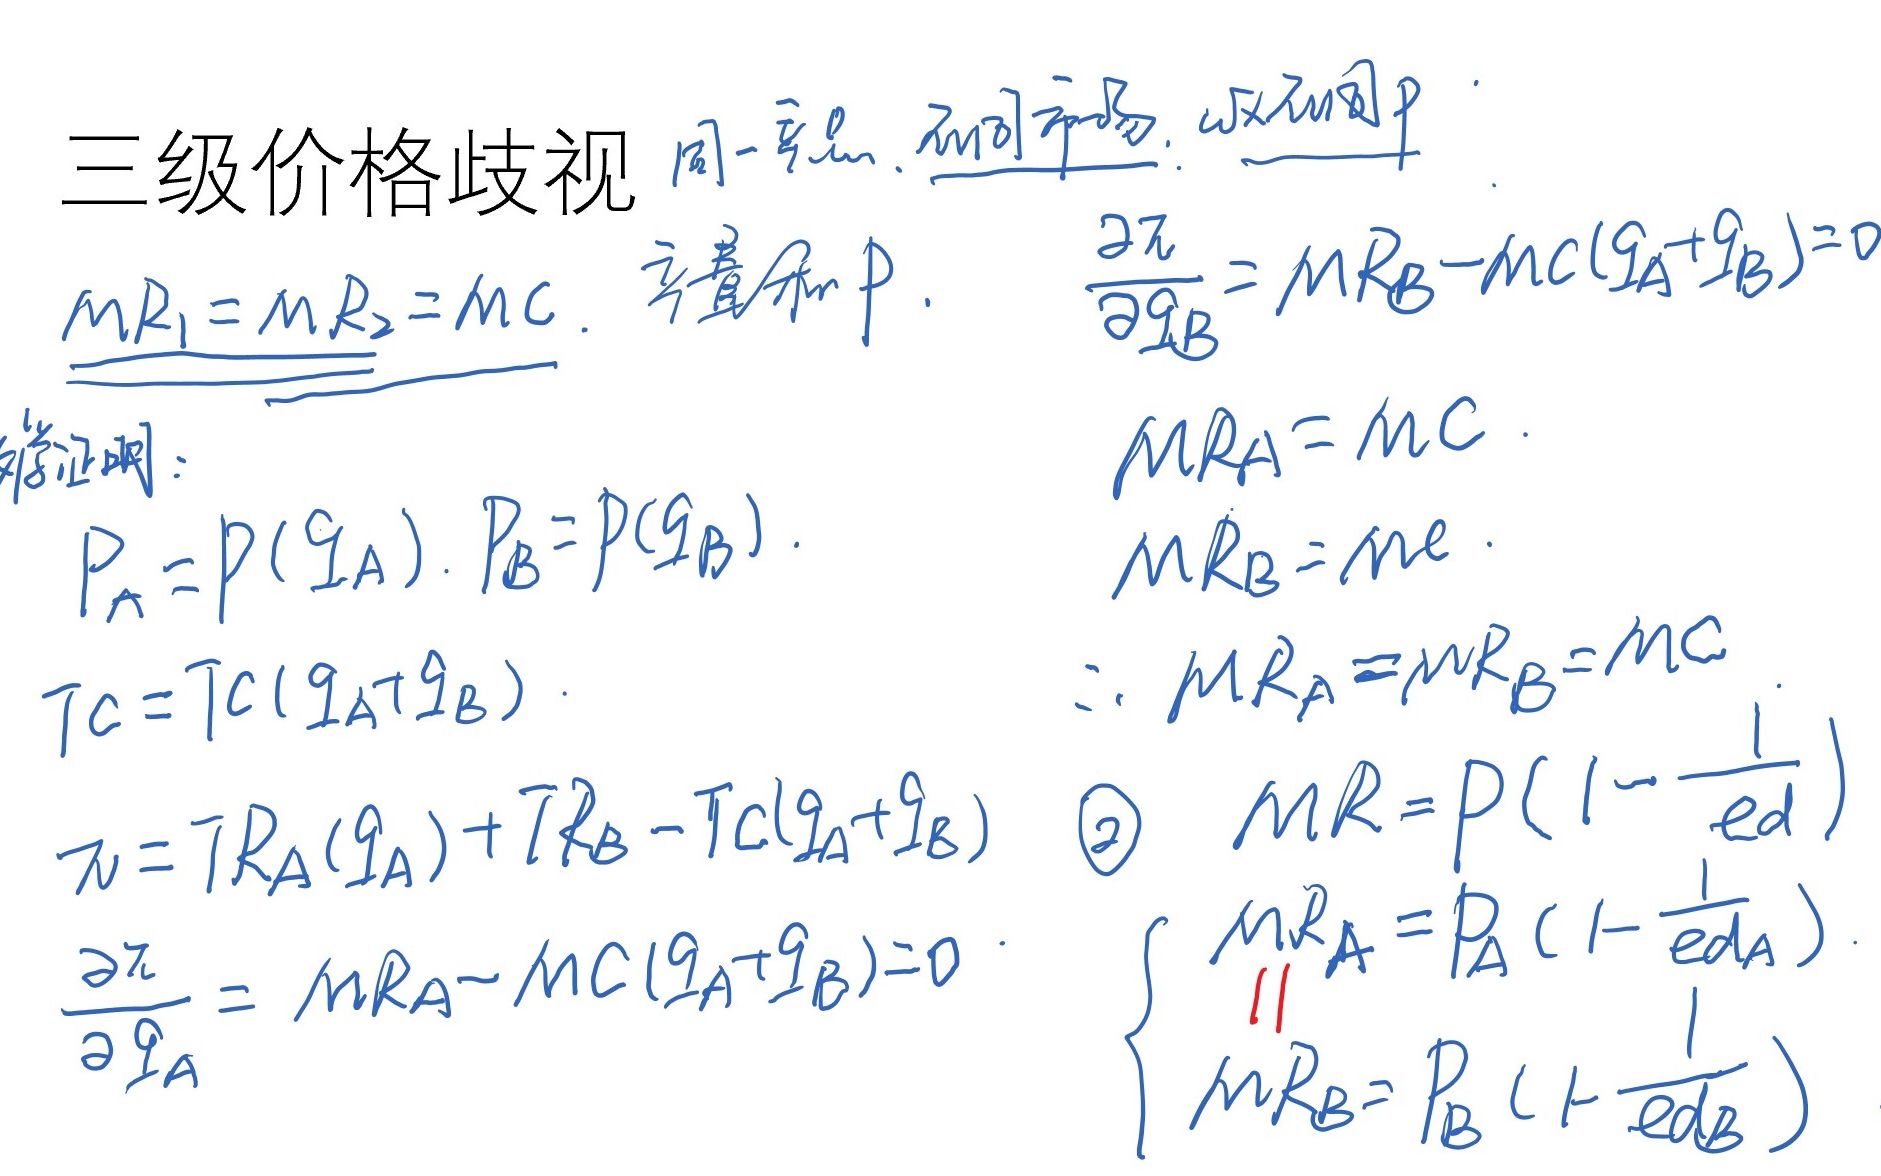 三级价格歧视 同一产品、不同市场. 收不同P.
MR₁=MR₂=MC. 产量和P.
数学证明:
P_A=P(q_A). P_B=P(q_B).
TC=TC(q_A+q_B).
π=TR_A(q_A)+TR_B-TC(q_A+q_B)
∂π/∂q_A = MR_A-MC(q_A+q_B)=0.
∂π/∂q_B = MR_B-MC(q_A+q_B)=0
MR_A=MC.
MR_B=MC.
∴ MR_A=MR_B=MC.
② MR=P(1-1/ed)
MR_A=P_A(1-1/ed_A).
||
MR_B=P_B(1-1/ed_B).